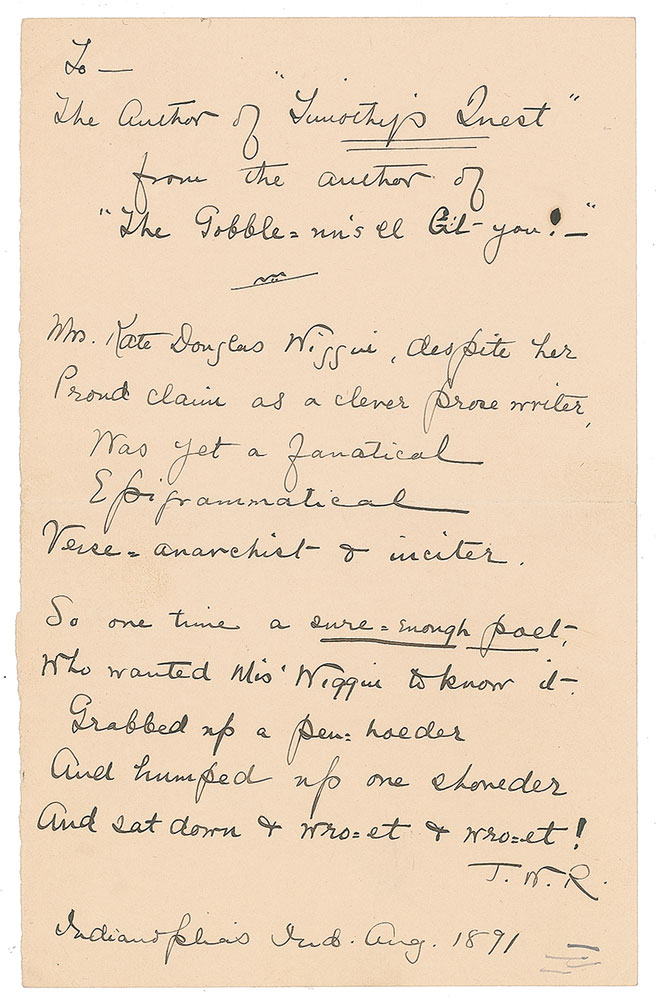 To —
The Author of "Timothy's Quest"
from the author of
"The Gobble=un's ll Git you! —"
Mrs. Kate Douglas Wiggin, despite her
Proud claim as a clever prose writer,
Was yet a fanatical
Epigrammatical
Verse=anarchist & inciter.
So one time a sure=enough poet,
Who wanted Mis' Wiggin to know it
Grabbed up a pen=holder
And humped up one shoulder
And sat down & wro=et & wro=et!
J. W. R.
Indianoplias Ind. Aug. 1891